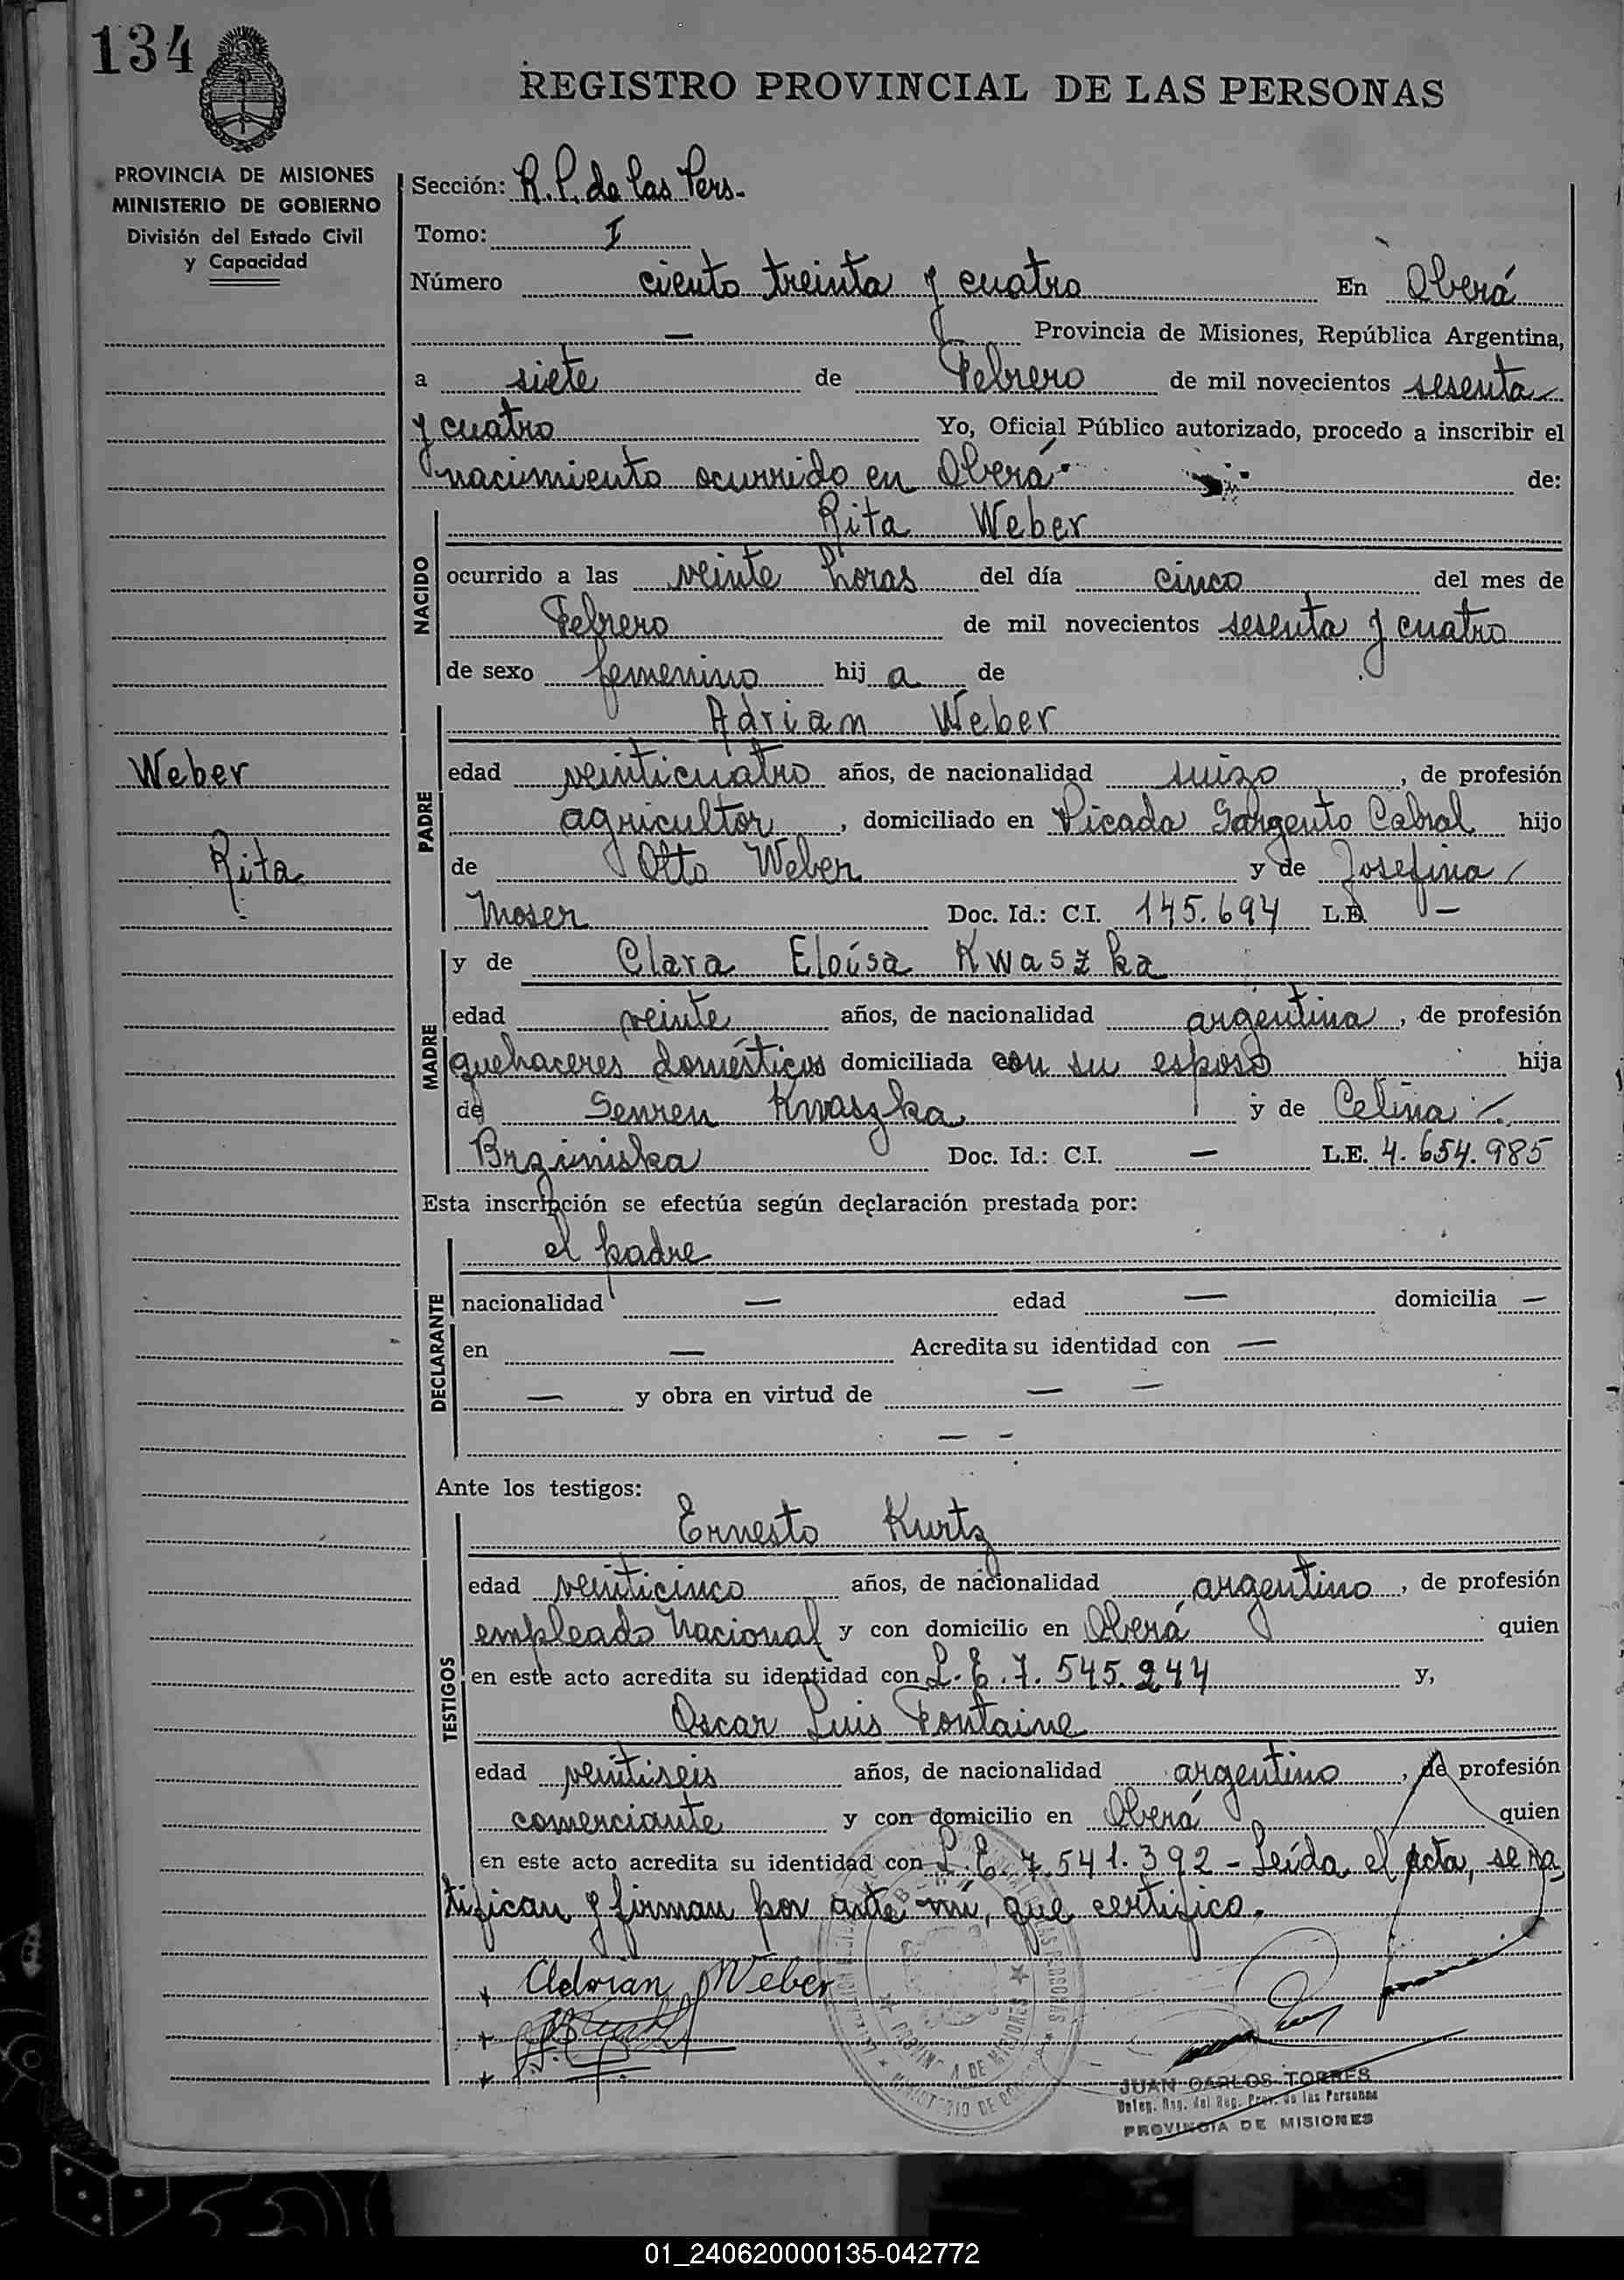 134
REGISTRO PROVINCIAL DE LAS PERSONAS
PROVINCIA DE MISIONES
MINISTERIO DE GOBIERNO
División del Estado Civil
y Capacidad
Sección: R.P. de las Pers.
Tomo: I
Número ciento treinta y cuatro En Oberá
— Provincia de Misiones, República Argentina,
a siete de Febrero de mil novecientos sesenta
y cuatro Yo, Oficial Público autorizado, procedo a inscribir el
nacimiento ocurrido en Oberá de:
NACIDO
Rita Weber
ocurrido a las veinte horas del día cinco del mes de
Febrero de mil novecientos sesenta y cuatro
de sexo femenino hij a de
Weber
Rita
PADRE
Adrian Weber
edad veinticuatro años, de nacionalidad suizo, de profesión
agricultor, domiciliado en Picada Sargento Cabral hijo
de Otto Weber y de Josefina
Moser Doc. Id.: C.I. 145.694 L.E. —
MADRE
y de Clara Eloísa Kwaszka
edad veinte años, de nacionalidad argentina, de profesión
quehaceres domésticos domiciliada con su esposo hija
de Kwaszka y de Celina
Brziniska Doc. Id.: C.I. — L.E. 4.654.985
Esta inscripción se efectúa según declaración prestada por:
DECLARANTE
el padre
nacionalidad — edad — domicilia —
en — Acredita su identidad con —
— y obra en virtud de — —
— -
Ante los testigos:
TESTIGOS
Ernesto Kurtz
edad veinticinco años, de nacionalidad argentino, de profesión
empleado Nacional y con domicilio en Oberá quien
en este acto acredita su identidad con L.E. 7.545.244 y,
Oscar Luis Fontaine
edad veintiseis años, de nacionalidad argentino, de profesión
comerciante y con domicilio en Oberá quien
en este acto acredita su identidad con L.E. 7.541.392 - Leída el acta, se ra
tifican y firman por ante mí, que certifico.
Adrian Weber
PROVINCIA DE MISIONES
JUAN CARLOS TORRES
Deleg. Reg. del Reg. Prov. de las Personas
PROVINCIA DE MISIONES
01_240620000135-042772